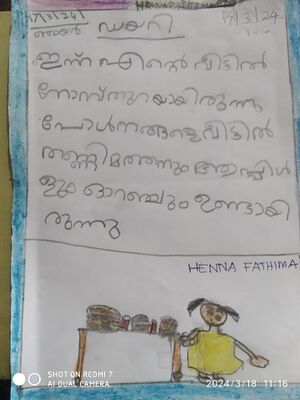 17/3/24 ഡയറി 17/3/24
ഞായർ
ഇന്ന് എന്റെ വീട്ടിൽ
നോമ്പ്തുറയായിരുന്നു
വീട്ടിൽ
തണ്ണിമത്തനും ആപ്പിൾ
ളും ഓറഞ്ചും ഉണ്ടായി
രുന്നു
HENNA FATHIMA
SHOT ON REDMI 7
AI DUAL CAMERA
2024/3/18 11:16